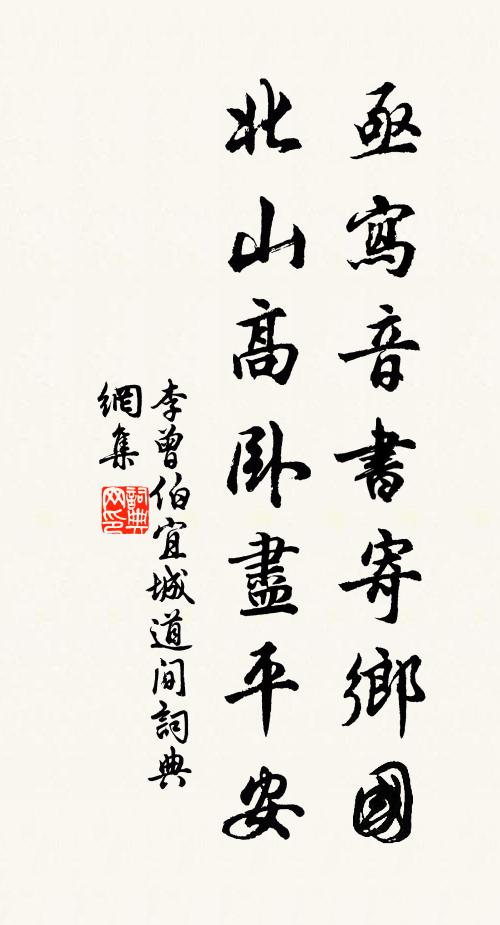 亟寫音書寄鄉國
北山高卧盡平安
李曾伯宜城道间詞典
網集
詞典
网印